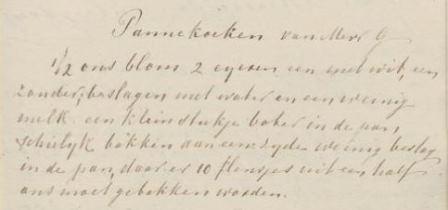 Pannekoeken van Mevr G
1/2 ons blom 2 eyeren een met wit, een
zonder, beslagen met water en een weinig
melk een klein stukje boter in de pan,
schielyk bakken aan eene zyde weinig beslag
in de pan, daar er 10 flensjes uit een half
ons moet gebakken worden.